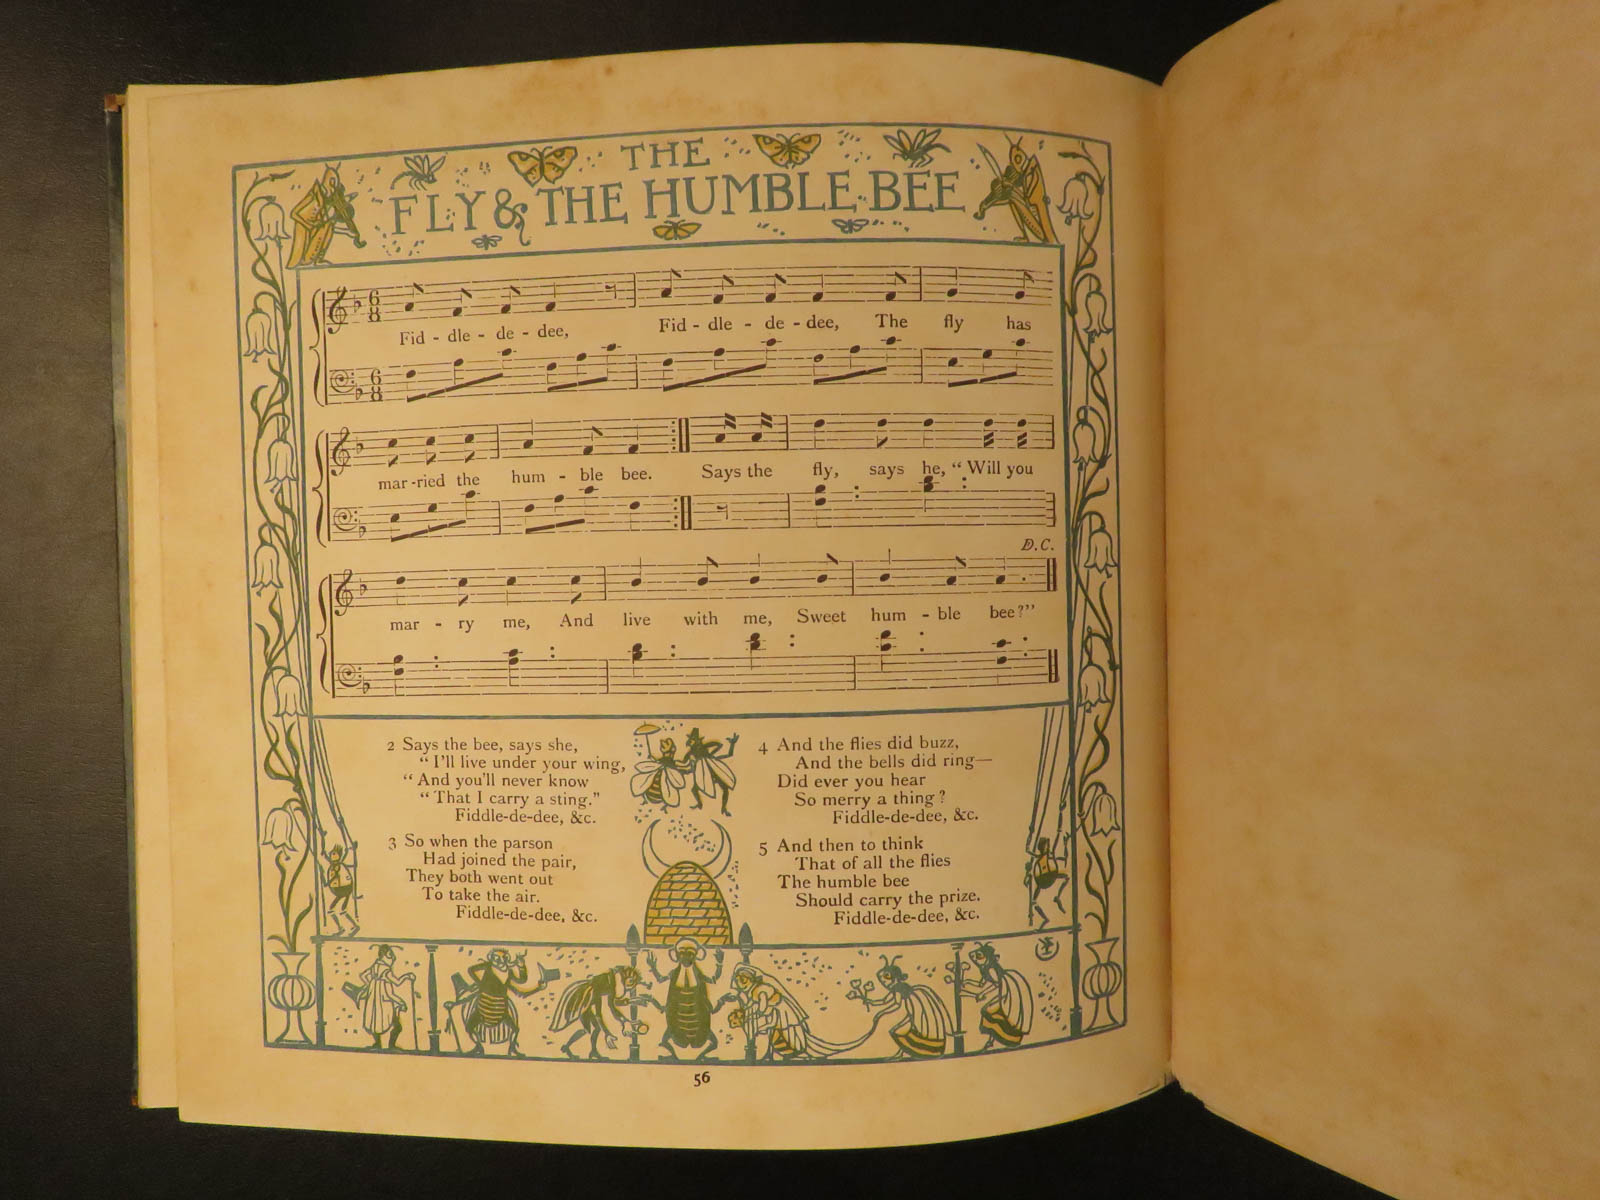 THE
FLY & THE HUMBLE BEE
Fid - dle - de - dee, Fid - dle - de - dee, The fly has
mar - ried the hum - ble bee. Says the fly, says he, “Will you
D.C.
mar - ry me, And live with me, Sweet hum - ble bee?”
2 Says the bee, says she,
“I'll live under your wing,
“And you'll never know
“That I carry a sting.”
Fiddle-de-dee, &c.
3 So when the parson
Had joined the pair,
They both went out
To take the air.
Fiddle-de-dee, &c.
4 And the flies did buzz,
And the bells did ring—
Did ever you hear
So merry a thing?
Fiddle-de-dee, &c.
5 And then to think
That of all the flies
The humble bee
Should carry the prize.
Fiddle-de-dee, &c.
56